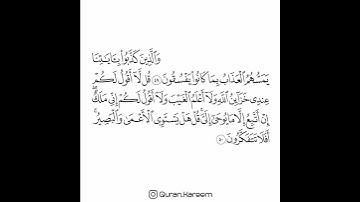 وَالَّذِينَ كَذَّبُوا۟ بِـَٔايَٰتِنَا
يَمَسُّهُمُ الْعَذَابُ بِمَا كَانُوا۟ يَفْسُقُونَ ٤٩ قُل لَّآ أَقُولُ لَكُمْ
عِندِى خَزَآئِنُ اللَّهِ وَلَآ أَعْلَمُ الْغَيْبَ وَلَآ أَقُولُ لَكُمْ إِنِّى مَلَكٌ ۖ
إِنْ أَتَّبِعُ إِلَّا مَا يُوحَىٰٓ إِلَىَّ ۚ قُلْ هَلْ يَسْتَوِى الْأَعْمَىٰ وَالْبَصِيرُ ۚ
أَفَلَا تَتَفَكَّرُونَ ٥٠
Quran.Kareem